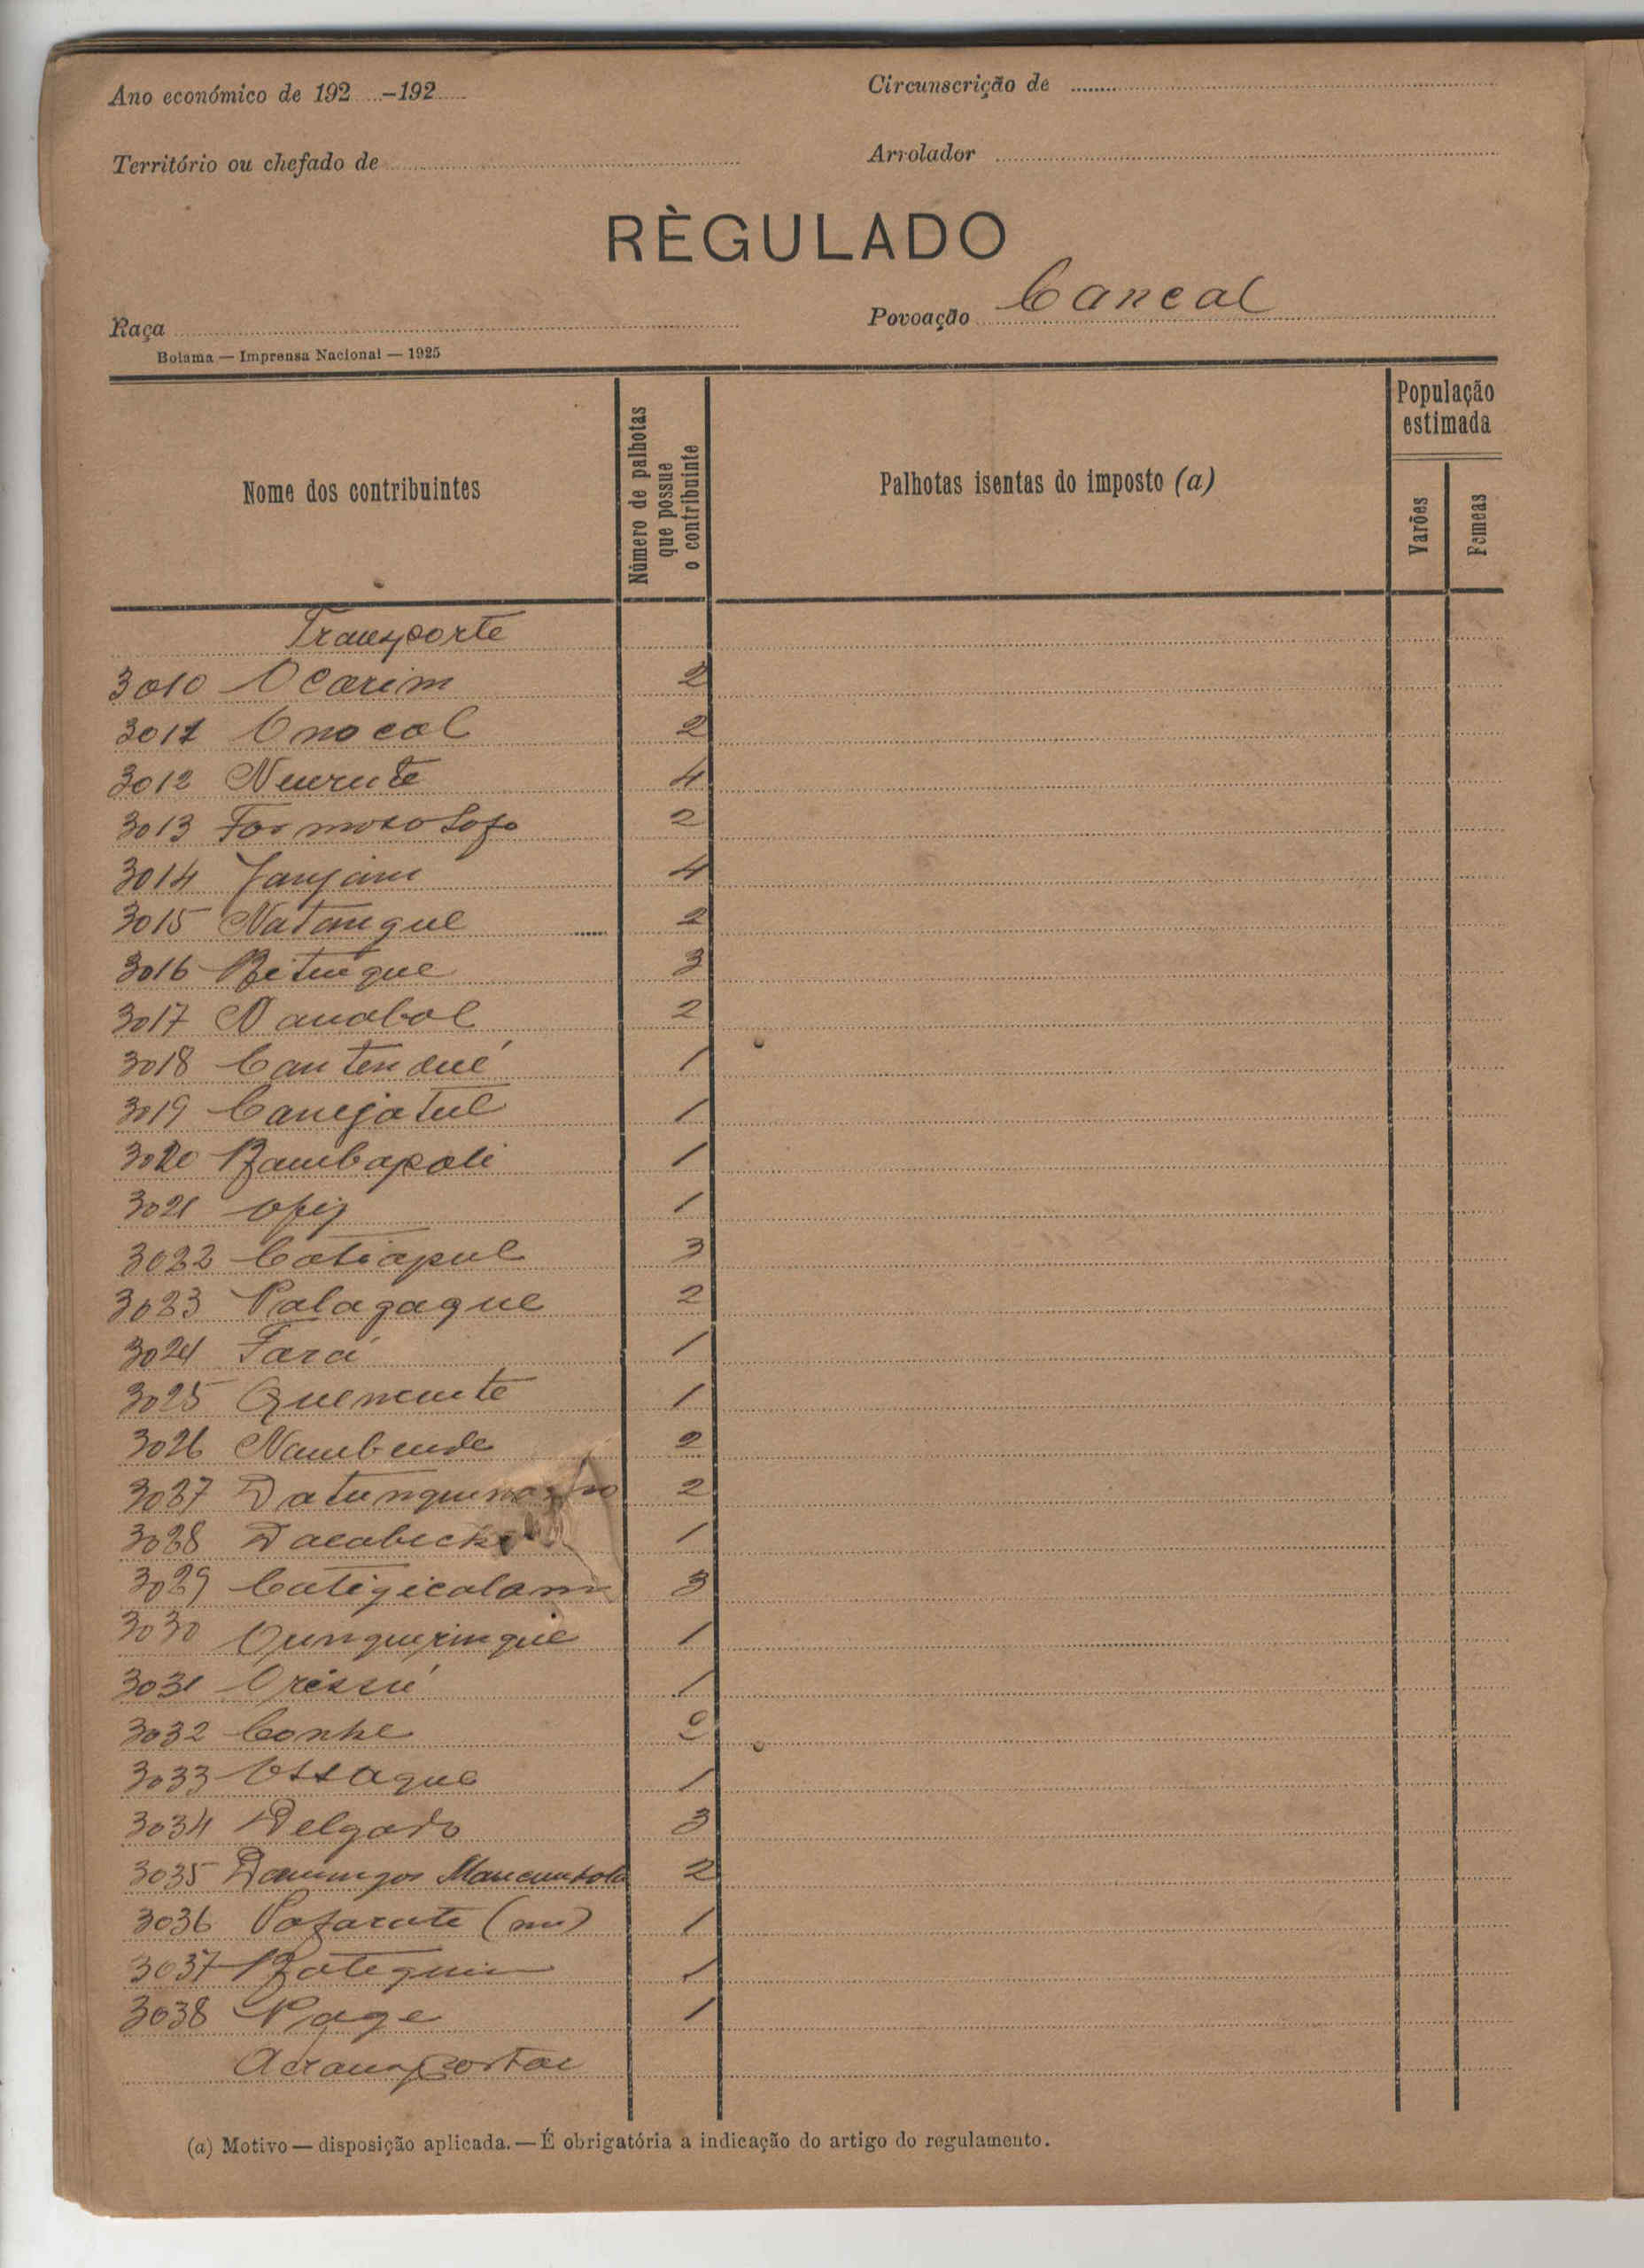 Ano económico de 192 -192
Circunscrição de
Território ou chefado de
Arrolador
RÈGULADO
Raça
Povoação Caneal
Bolama — Imprensa Nacional — 1925
Nome dos contribuintes
Número de palhotas que possue o contribuinte
Palhotas isentas do imposto (a)
População estimada
Varões
Femeas
Transporte
3010 Ocarim 2
3011 Onocal 2
3012 Neurute 4
3013 Formoso Lofo 2
3014 Janjam 4
3015 Natangue 2
3016 Betingue 3
3017 Nanabol 2
3018 Cantendué 1
3019 Canejatul 1
3020 Bambapoli 1
3021 Ofig 1
3022 Catiapul 3
3023 Palagaque 2
3024 Fará 1
3025 Quemente 1
3026 Nambende 2
3027 2
3028 1
3029 Catigicolam 3
3030 1
3031 Oréssu 1
3032 Conhe 2
3033 Ossaque 1
3034 Delgado 3
3035 Domingos 2
3036 Pofarate 1
3037 Botequim 1
3038 Page 1
A transportar
(a) Motivo — disposição aplicada. — É obrigatória a indicação do artigo do regulamento.